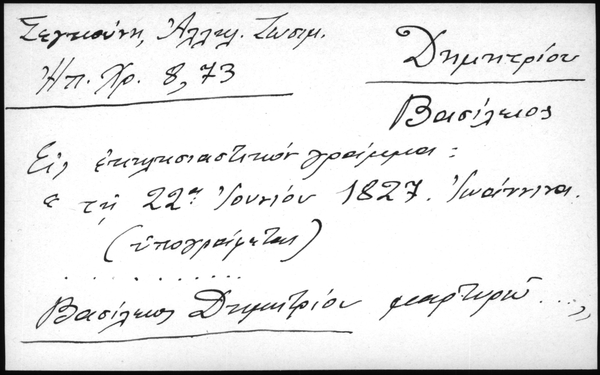 Σεγκούνη, Ἀλληλ. Ζωσιμ.
Ἠπ. Χρ. 8, 73
Δημητρίου
Βασίλειος
Εἰς ἐκκλησιαστικόν γράμμα:
τῇ 22ᾳ Ἰουνίου 1827. Ἰωάννινα.
(ὑπογράφεται)
. . . . . . . . . .
Βασίλειος Δημητρίου μαρτυρῶ ...,,